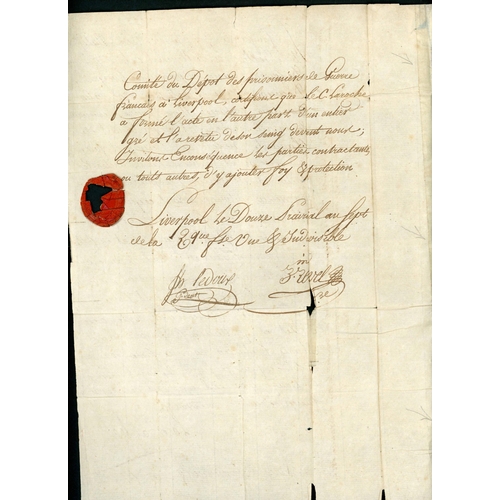 Comité du Dépot des prisonniers de Guerre
français à Liverpool, certifions que le C. Laroche
a formé l'acte en l'autre part d'un entier
gré et l'a revétu de son seing devant nous;
Invitons En conséquence les parties contractantes
ou touts autres, d'y ajouter foy & protection
Liverpool le Douze Prairial au Sept
de la Rque fse Une & Indivisible